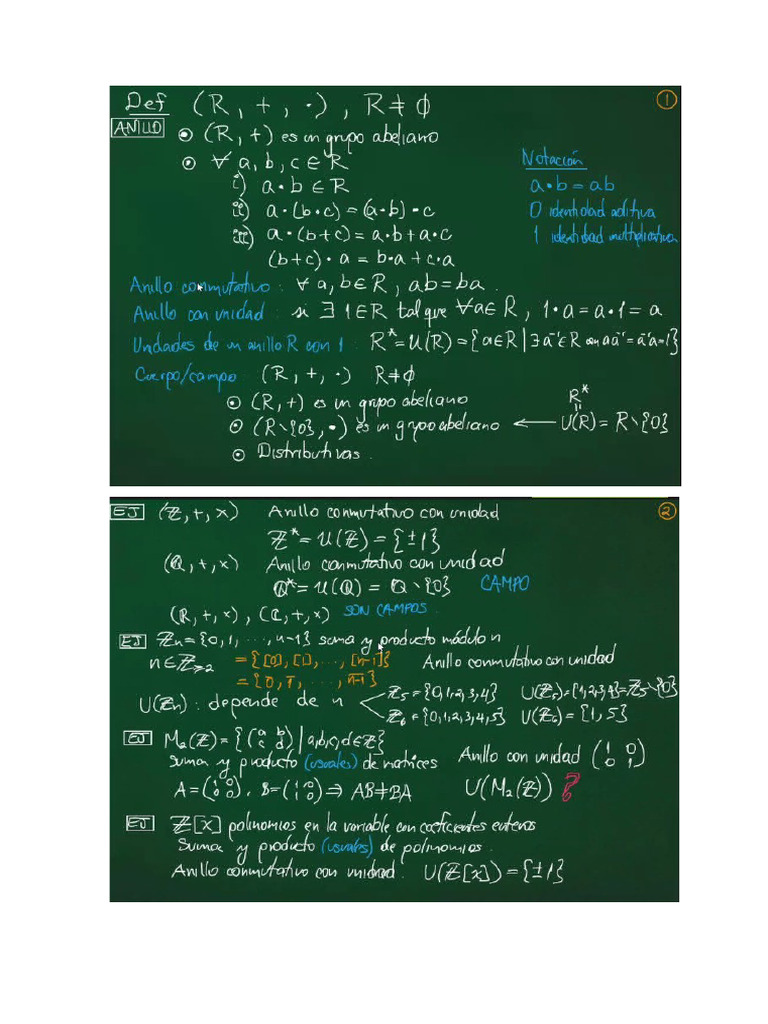 Def (R, +, ·), R ≠ ∅
1
ANILLO
⊙ (R, +) es un grupo abeliano
⊙ ∀ a, b, c ∈ R
i) a·b ∈ R
ii) a·(b·c) = (a·b)·c
iii) a·(b+c) = a·b + a·c
(b+c)·a = b·a + c·a
Notación
a·b = ab
0 identidad aditiva
1 identidad multiplicativa
Anillo conmutativo: ∀ a, b ∈ R, ab = ba.
Anillo con unidad: si ∃ 1 ∈ R tal que ∀a ∈ R, 1·a = a·1 = a
Unidades de un anillo R con 1: R* = U(R) = {a ∈ R | ∃ a⁻¹ ∈ R con aa⁻¹ = a⁻¹a = 1}
Cuerpo/campo: (R, +, ·) R ≠ ∅
⊙ (R, +) es un grupo abeliano
⊙ (R∖{0}, ·) es un grupo abeliano ⟵ U(R) = R∖{0}
R*
=
⊙ Distributivas.
EJ (ℤ, +, x) Anillo conmutativo con unidad
2
ℤ* = U(ℤ) = {±1}
(ℚ, +, x) Anillo conmutativo con unidad
ℚ* = U(ℚ) = ℚ∖{0} CAMPO
(ℝ, +, x), (ℂ, +, x) SON CAMPOS.
EJ ℤn = {0, 1, ..., n-1} suma y producto módulo n
n ∈ ℤ≥2 = {[0], [1], ..., [n-1]} Anillo conmutativo con unidad
= {0̅, 1̅, ..., n-1̅}
U(ℤn): depende de n
ℤ5 = {0,1,2,3,4} U(ℤ5) = {1,2,3,4} = ℤ5∖{0}
ℤ6 = {0,1,2,3,4,5} U(ℤ6) = {1,5}
EJ M2(ℤ) = {(a b c d) | a,b,c,d ∈ ℤ}
Suma y producto (usuales) de matrices Anillo con unidad (1 0 0 1)
A = (0 1 0 0), B = (1 0 1 0) ⇒ AB ≠ BA U(M2(ℤ)) ?
EJ ℤ[x] polinomios en la variable con coeficientes enteros
Suma y producto (usuales) de polinomios.
Anillo conmutativo con unidad. U(ℤ[x]) = {±1}